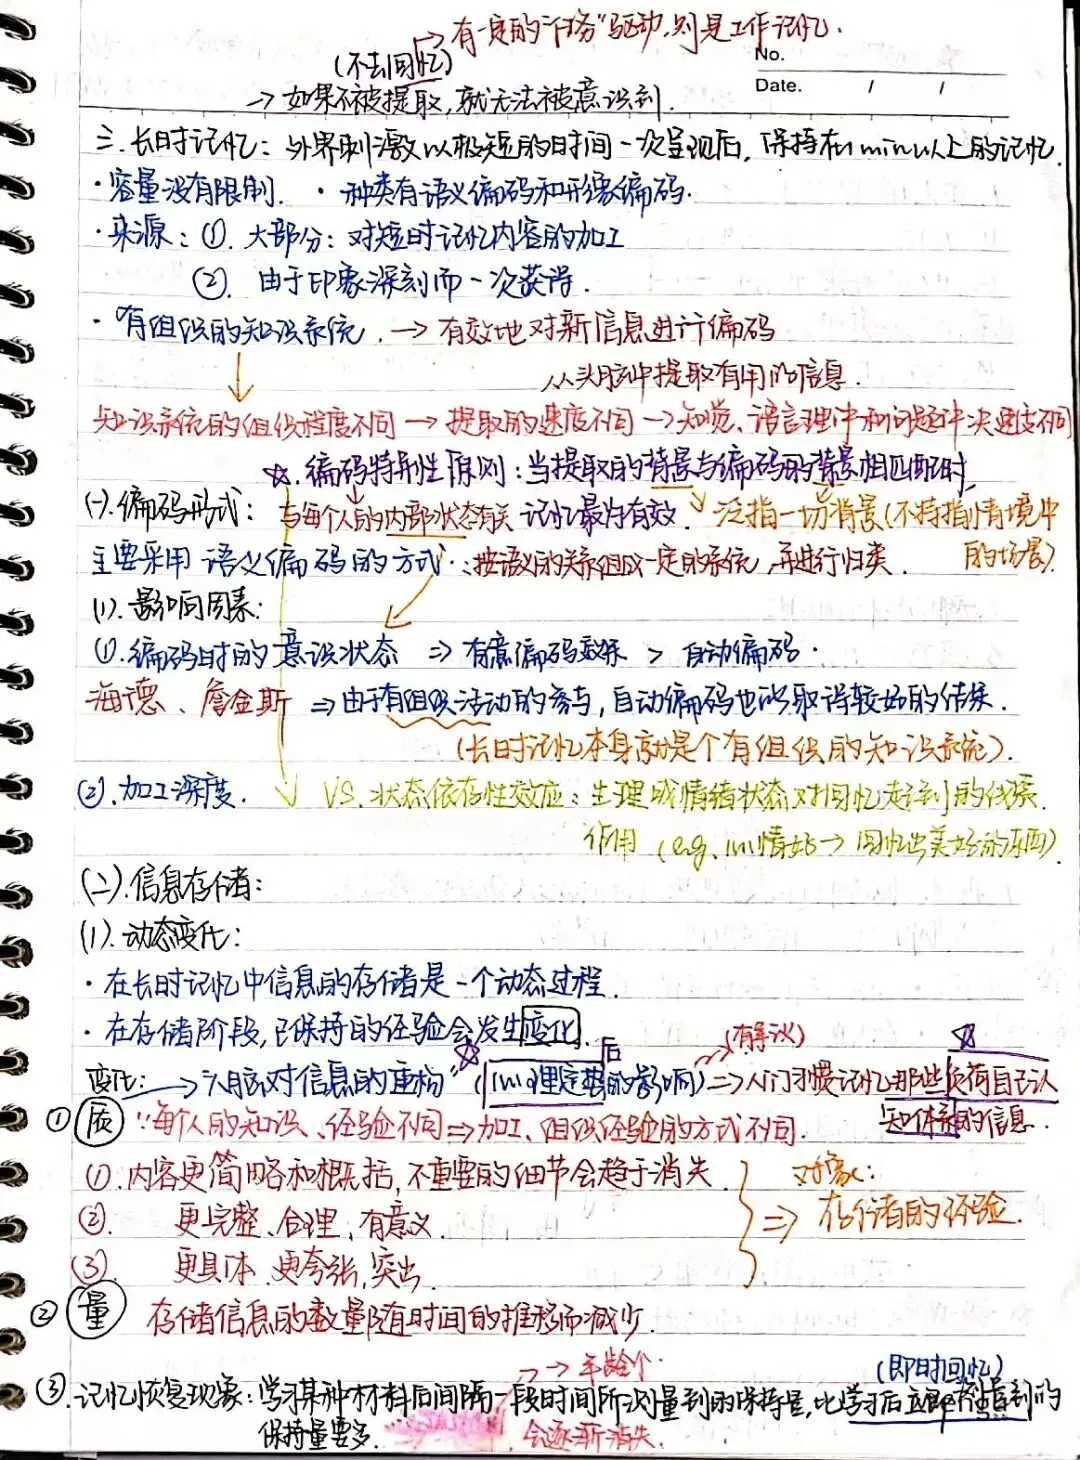 有一定的"任务"驱动,则是工作记忆.
(不去回忆)
No.
→ 如果不被提取,就无法被意识到.
Date. / /
三.长时记忆:外界刺激以极短的时间一次呈现后,保持在1min以上的记忆.
·容量没有限制. ·种类有语义编码和形象编码.
·来源:①.大部分:对短时记忆内容的加工
②.由于印象深刻而一次获得.
·有组织的知识系统.→有效地对新信息进行编码
从头脑中提取有用的信息.
知识系统的组织程度不同→提取的速度不同→知觉、语言理解和问题解决速度不同
☆.编码特异性原则:当提取的背景与编码的背景相匹配时,
(一).编码形式: 与每个人的内部状态有关 记忆最为有效. 泛指一切背景(不特指情境中
主要采用语义编码的方式:按语义的关系组成一定的系统,并进行归类. 的场景)
(1).影响因素:
①.编码时的意识状态 ⇒ 有意编码效果 > 自动编码.
海德、詹金斯 ⇒由于有组织活动的参与,自动编码也以取得较好的结果.
(长时记忆本身就是个有组织的知识系统).
②.加工深度. VS.状态依存性效应:生理或情绪状态对回忆起到的线索
作用(e.g.心情好→回忆出美好的东西)
(二).信息存储:
(1).动态变化:
·在长时记忆中信息的存储是一个动态过程.
·在存储阶段,已保持的经验会发生变化.
后 (有异议) ☆
变化:→人脑对信息的重构"(心理定势的影响)⇒人们习惯记忆那些负荷自己认
①质 "每个人的知识、经验不同⇒加工、组织经验的方式不同. 知体系的信息.
①.内容更简略和概括,不重要的细节会趋于消失 对象:
②. 更完整、合理、有意义. ⇒ 存储的经验.
③. 更具体、更夸张,突出.
②量 存储信息的数量随时间的推移而减少.
→年龄个 (即时回忆)
③.记忆恢复现象:学习某种材料后间隔一段时间所测量到的保持量,比学习后立即测量到的
保持量要多. 会逐渐消失.